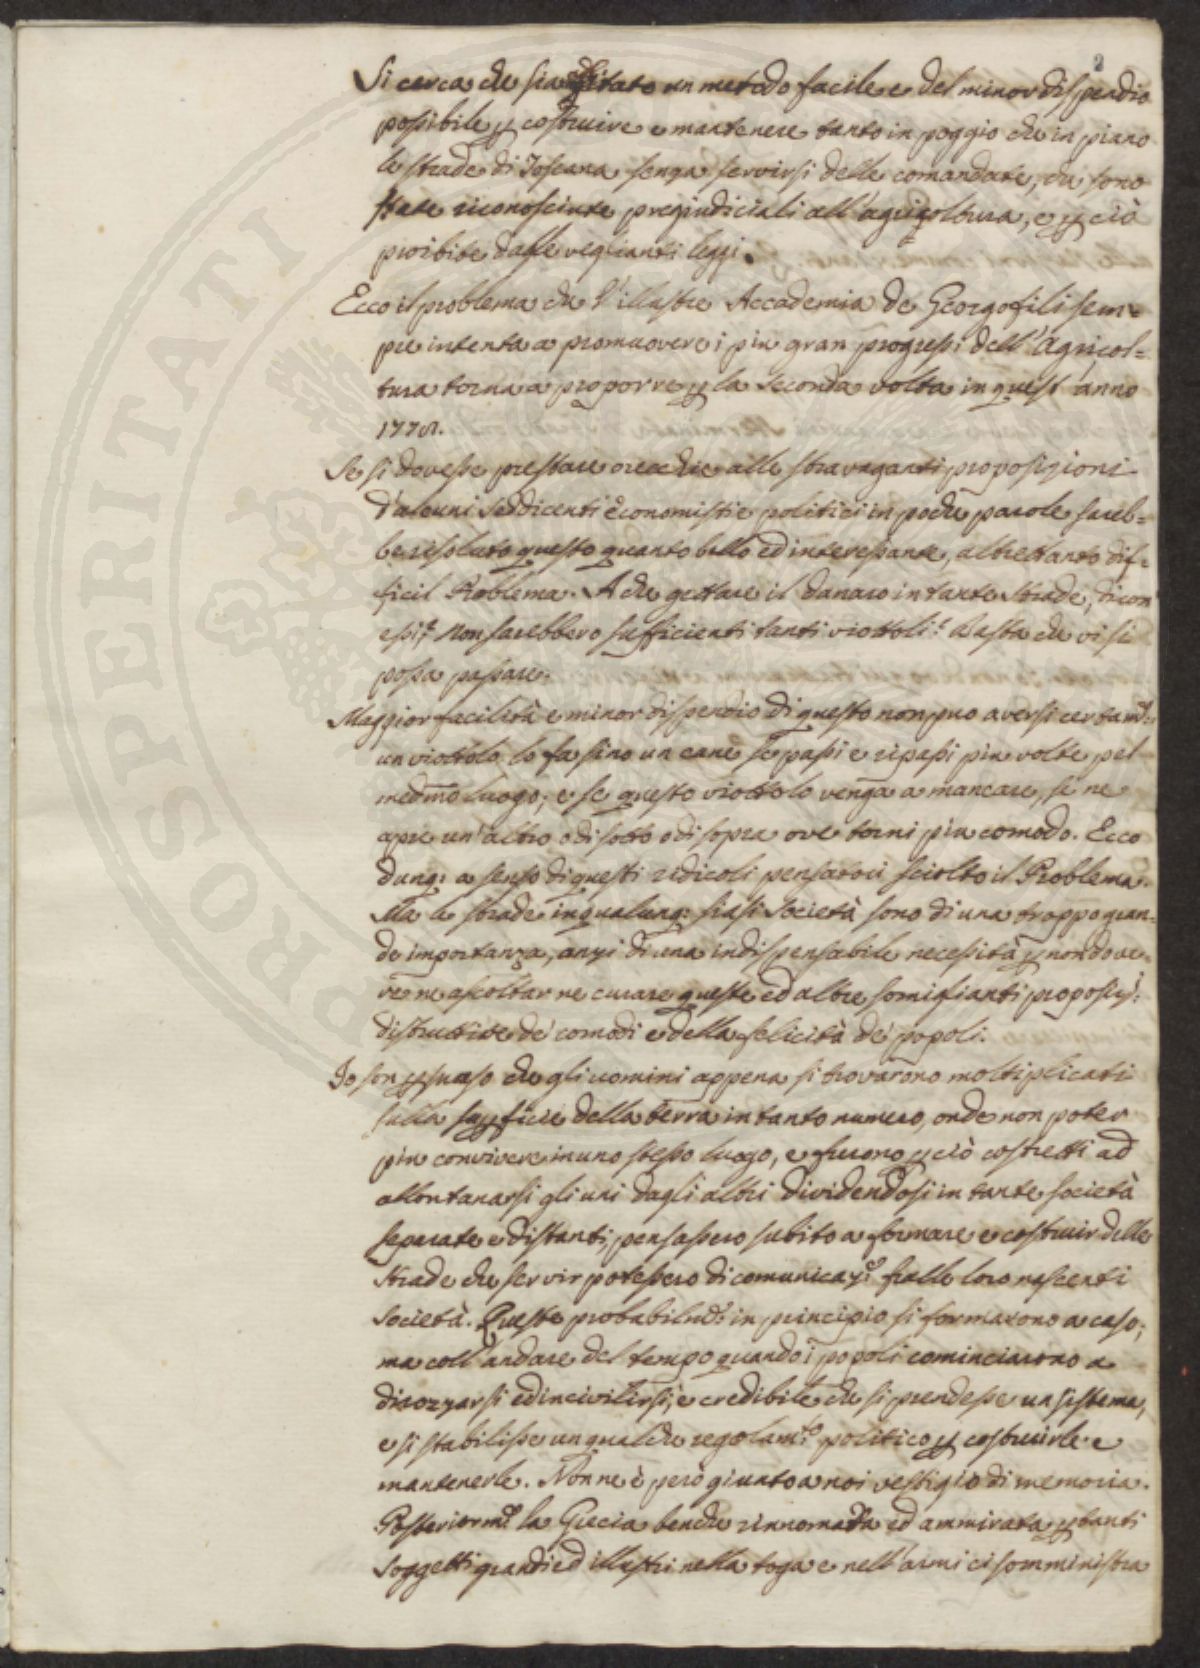 2
Si cerca che sia additato un metodo facile e del minor dispendio
possibile p costruire e mantenere tanto in poggio che in piano
le strade di Toscana senza servirsi delle comandate, che sono
state riconosciute pregiudiciali all'agricoltura, e p ciò
proibite dalle veglianti leggi.
Ecco il problema che l'illustre Accademia de Georgofili sem=
pre intenta a promuovere i più gran progressi dell'Agricol=
tura torna a proporre p la seconda volta in quest'anno
Se si dovesse prestare orecchie alle stravaganti proposizioni
d'alcuni sedicenti economisti e politici in poche parole sareb=
be risoluto questo quanto bello ed interessante, altrettanto dif=
ficil Problema. A che gettare il danaro in tante strade, dicon
essi? Non sarebbero sufficienti tanti viottoli? Basta che vi si
possa passare.
Maggior facilità e minor dispendio di questo non puo aversi certamte:
un viottolo lo fa sino un cane se passi e ripassi più volte pel
medmo luogo; e se questo viottolo venga a mancare, se ne
apre un'altro o di sotto o di sopra ove torni più comodo. Ecco
dunq: a senso di questi ridicoli pensatori sciolto il Problema.
Ma le strade in qualunq: siasi Società sono di una troppo gran=
de importanza, anzi di una indispensabile necessità p non dove=
re ne ascoltar ne curare queste ed altre somiglianti proposizi:
distruttive de' comodi e della felicità de' popoli.
Io son psuaso che gli uomini appena si trovarono moltiplicati
sulla supficie della terra in tanto numero, onde non poter
più convivere in uno stesso luogo, e furono p ciò costretti ad
allontanarsi gli uni dagli altri dividendosi in tante società
separate e distanti, pensassero subito a formare e costruir delle
strade che servir potessero di comunicaze fralle loro nascenti
società. Queste probabilmte in principio si formarono a caso;
ma coll'andare del tempo quando i popoli cominciarono a
dirozzarsi ed incivilirsi, è credibile che si prendesse un sistema,
e si stabilisse un qualche regolamto politico p costruirle e
mantenerle. Non ne è però giunto a noi vestigio di memoria.
Posteriormte la Grecia benche rinnomata ed ammirata p tanti
soggetti grandi ed illustri nella toga e nell'armi ci somministra